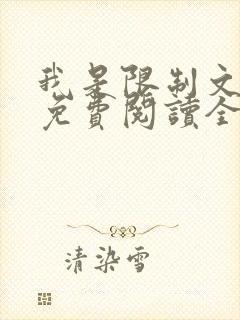 我是限制文
免費閱讀全
清染雪